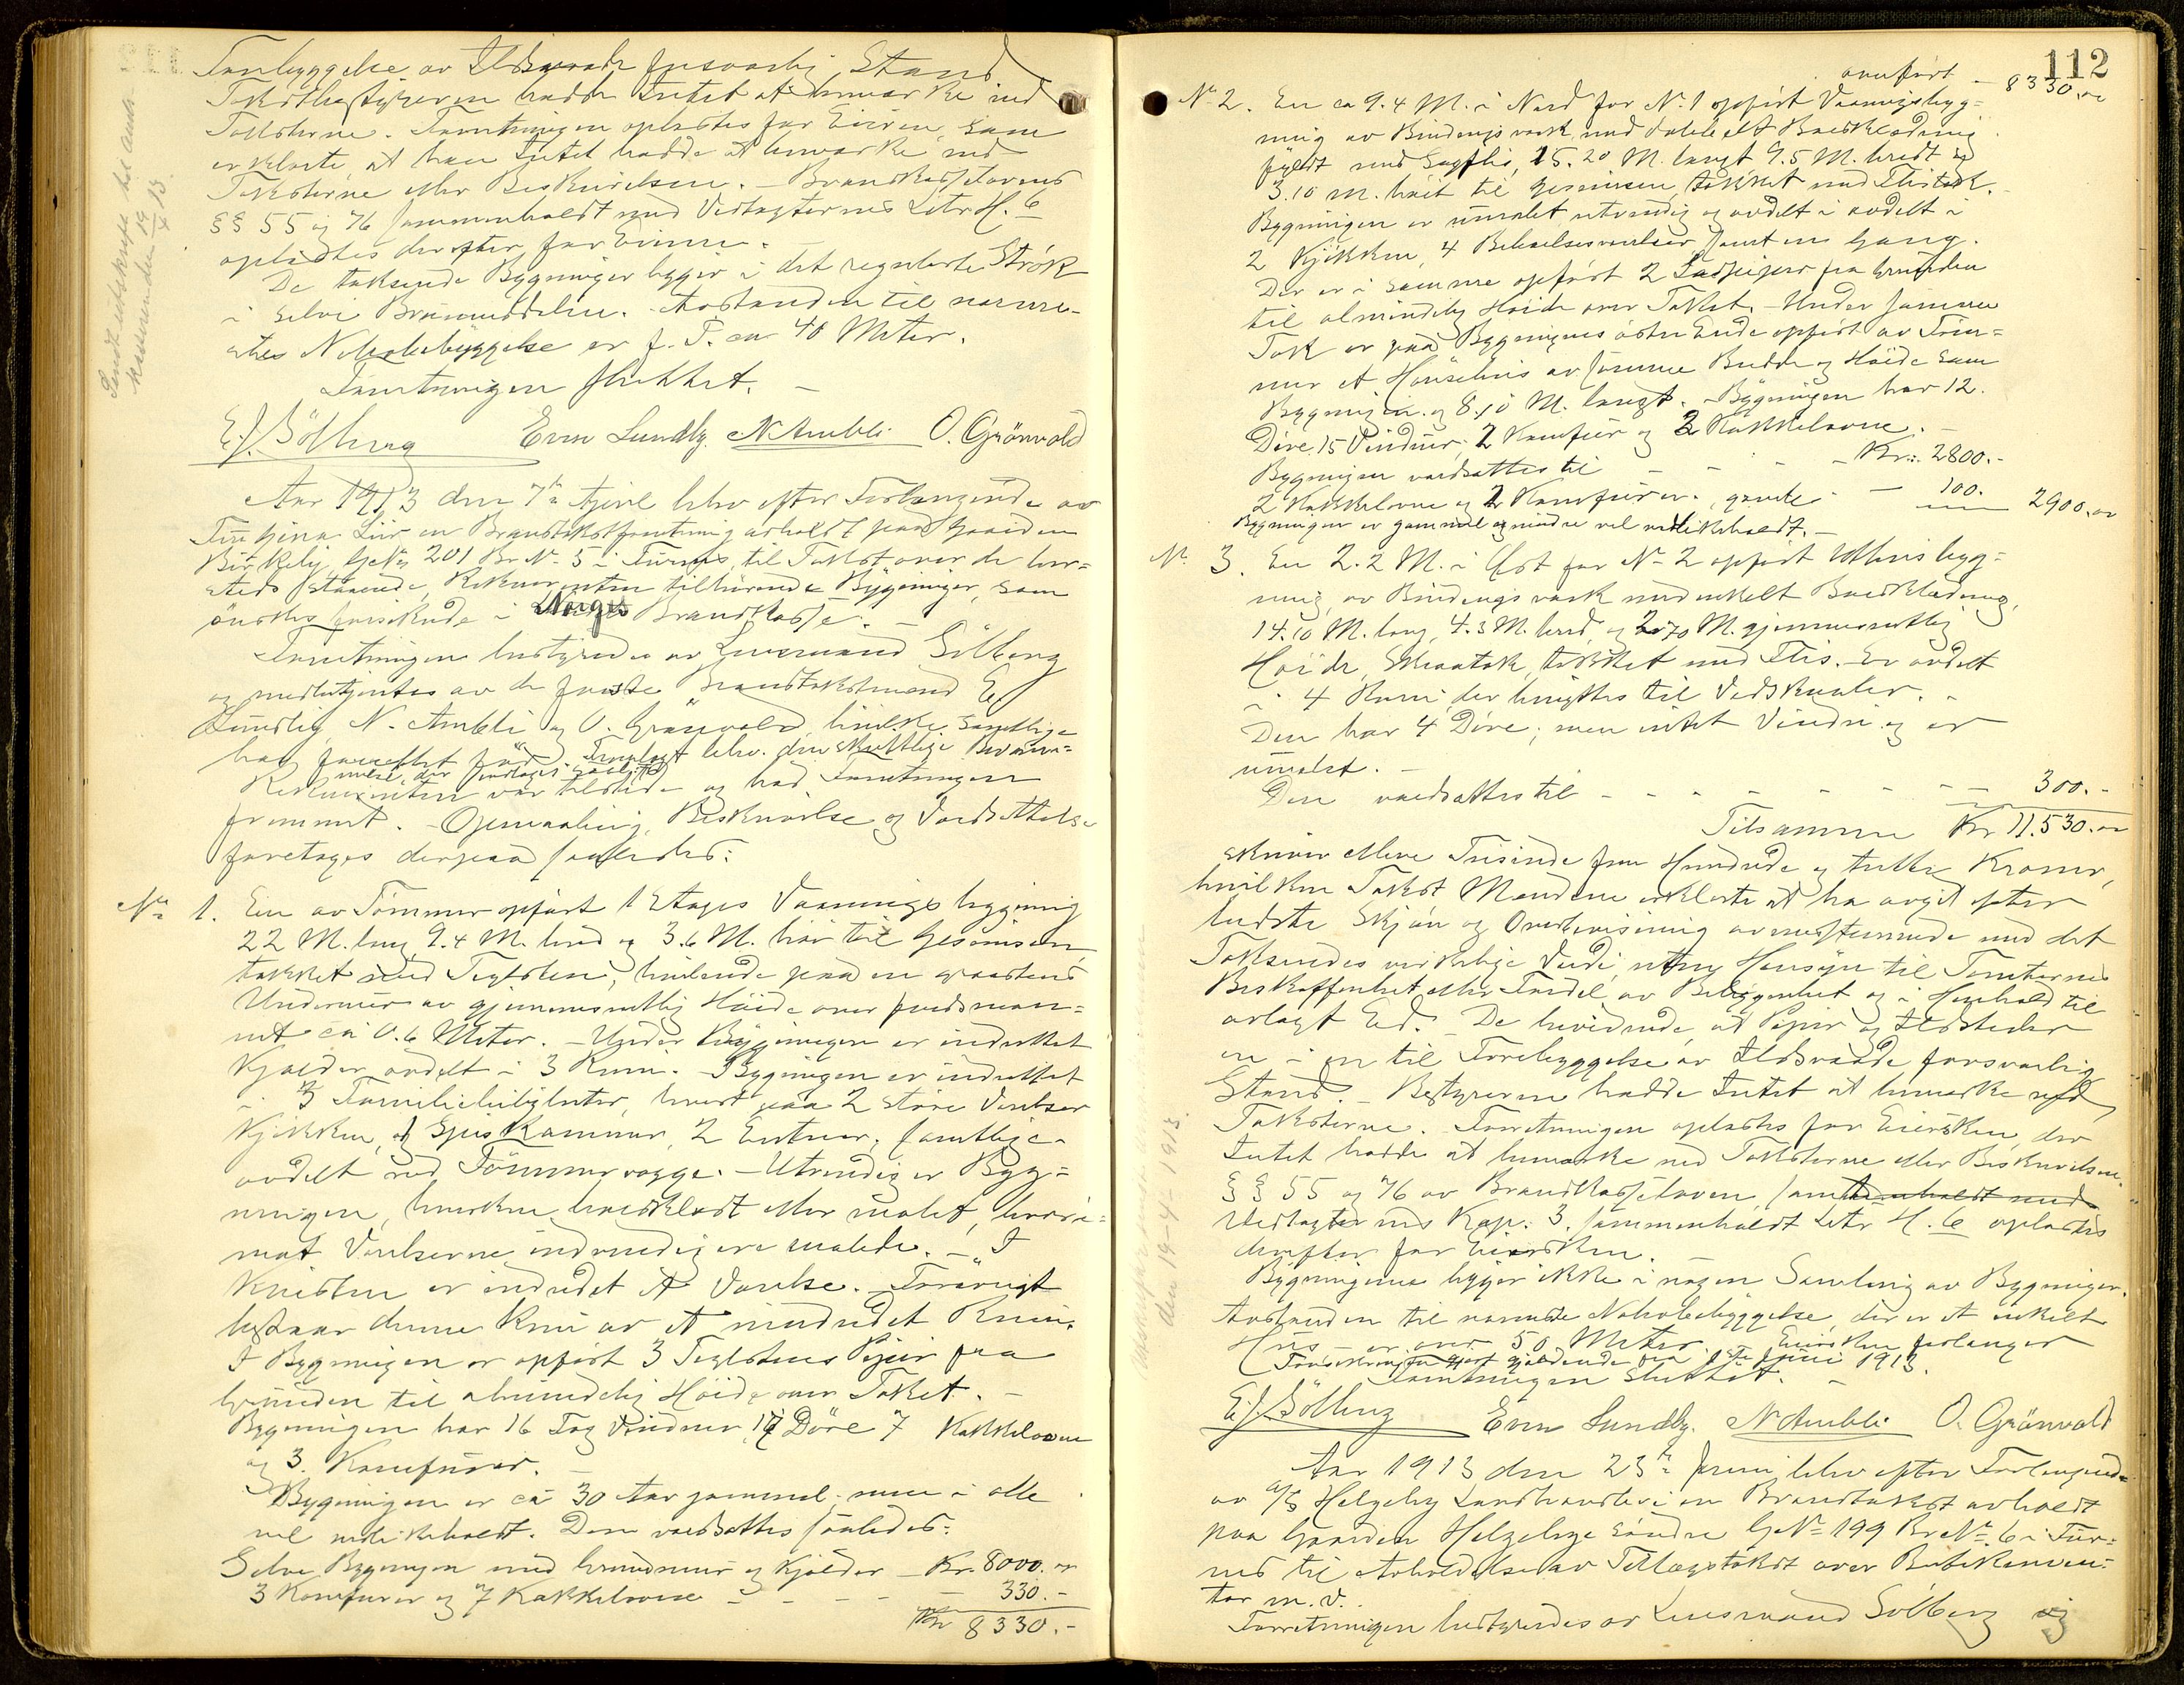 Forebyggelse av Ildsvaade forsvarlig Stand
Takstbestyreren hadde Intet at bemærke ved
Taksterne. Forretningen oplæstes for Eieren, som
erklærte, at han Intet hadde at bemærke ved
Taksterne eller Beskrivelsen. – Brandkasselovens
§§ 55 og 76 sammenholdt med Vedtægternes Litr H. 6
oplæstes derefter for Eieren.
De takserede Bygninger ligger i det regulerte Strøk
i selve Brumunddalen. Avstanden til nærme-
stes Nabobebyggelse er f. T. ca 40 Meter.
Forretningen sluttet. –
E. J. Sölberg Even Lundby. N Ambli O. Grönvold
Sendt utskrift til
kassereren den 19/4 13.
Aar 1913 den 7de April blev efter Forlangende av
Lier en Brandtakstforretning avholdt paa Gaarden
Birkely G.No 201 Br No 5 i Furnes, til Takst over de her-
steds staaende, Rekvirenten tilhørende Bygninger, som
ønskes forsikrede i Norges Brandkasse. –
Forretningen bestyredes av Lensmand Sölberg
og medbetjentes av de faste Brandtakstmænd E
Lundby, N. Ambli og O. Grönvold, hvilke samtlige
har forevist før avlagt blev. den skriftlige
Rekvirenten var tilstede og bad Forretningen
fremmet. – Opmaaling, Beskrivelse og Værdsættelse
foretoges derpaa saaledes:
No 1. En av Tømmer opført 1 Etages Vaaningsbygning
22 M. lang 9.4 M. bred og 3.6 M. høi til Gesimsen,
tækket med Teglsten, hvilende paa en graastens
Undermur av gjennemsnitlig Høide over Jordsmon-
net ca 0.6 Meter. – Under Bygningen er indrettet
Kjælder avdelt i 3 Rum. – Bygningen er indrettet
i 3 Familieleiligheter, hvert paa 2 større Værelser
Kjøkken, og Spiskammer, 2 Entreer, samtlige
avdelt ved Tømmervægge. – Utvendig er Byg-
ningen, hverken bordklædt eller malet, hvori-
mot Værelserne indvendig ere malede. – I
Kvisten er indredet et Værelse. Forøvrigt
bestaar denne kun av et uindredet Rum.
I Bygningen er opført 3 Teglstens Piper fra
Grunden til almindelig Høide over Taket. –
Bygningen har 16 Fag Vinduer, 17 Døre 7 Kakkelovne
og 3. Komfurer. –
Bygningen er ca 30 Aar gammel, men i alle
vel vedlikeholdt. Den værdsættes saaledes:
Selve Bygningen med Grundmur og Kjælder – Kr. 8000. –
3 Komfurer og 7 Kakkelovne – – – – 330. –
Kr 8330. –
112
overført – 8330. –
No 2. En ca 9.4 M. i Nord for No 1 opført Vaaningsbyg-
ning av Bindingsværk med dobbelt Bordklædning
fyldt med Sagflis, 15.20 M. langt 9.5 M. bredt og
3.10 M. høit til Gesimsen, tækket med Flistak. –
Bygningen er umalet utvendig og avdelt i avdelt i
2 Kjøkken, 4 Beboelsesværelser samt en Gang.
Der er i samme opført 2 Piper fra Grunden
til almindelig Høide over Taket. – Under samme
Tak er paa Bygningens østre Ende opført av Töm-
mer et Hønsehus av samme Bredde og Høide som
Bygningen og 8.10 M. langt. – Bygningen har 12.
Døre, 15 Vinduer, 2 Komfur og 2 Kakkelovne. –
Bygningen værdsættes til – – – – Kr. 2800. –
2 Kakkelovne og 2 Komfurer, gamle – – 100. – 2900. –
Bygningen er gammel og mindre vel vedlikeholdt. –
No 3. En 2.2 M. i Øst for No 2 opført Uthusbyg-
ning, av Bindingsværk med enkelt Bordklædning,
14.10 M. lang, 4.3 M. bred, og 2.70 M. gjennemsnitlig
Høide, Skraatak, tækket med Flis. – Er avdelt
i 4 Rum, der benyttes til Vedskjuler. –
Den har 4 Døre, men intet Vindu og er
umalet. –
Den værdsættes til – – – – – – – – 300. –
Tilsammen Kr 11.530. –
skriver elleve Tusinde fem Hundrede og tretti Kroner,
hvilken Takst Mændene erklærte at ha avgit efter
bedste Skjøn og Overbevisning overensstemmende med det
Taksendes virkelige Verdi, uten Hensyn til Tomternes
Beskaffenhet eller Fordel av Beliggenhet og i Henhold til
avlagt Ed. – De bevidnede, at Piper og Ildsteder
er i en til Forebyggelse av Ildsvaade forsvarlig
Stand. – Bestyreren hadde Intet at bemærke ved
Taksterne. – Forretningen oplæstes for Eiersken, der
Intet hadde at bemærke ved Taksterne eller Beskrivelsen.
§§ 55 og 76 av Brandkasseloven, sammenholdt med
Vedtægternes Kap. 3, sammenholdt Litr H. 6 oplæstes
derefter for Eiersken.
Bygningerne ligger ikke i nogen Samling av Bygninger.
Avstanden til nærmeste Nabobebyggelse, der er et enkelt
Hus – er over 50 Meter. Eiersken forlanger
Forsikringen gjort gjældende fra 1ste Juni 1913.
Forretningen sluttet. –
E. J. Sölberg Even Lundby. N Ambli O. Grönvold
den 19-4-1913.
Aar 1913 den 23de Juni blev efter Forlangende
av A/S Helgeby Landhandleri en Brandtakst avholdt
paa Gaarden Helgeby søndre G.No 199 Br.No 6 i Fur-
nes til Avholdelse av Tillægstakst over
m. v.
Forretningen bestyredes av Lensmand Sölberg og